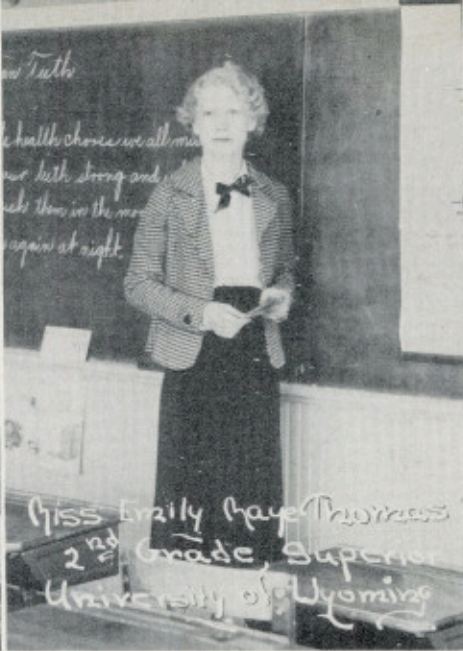 an Teeth
health chores we all mu
our teeth strong and
ush them in the mo
again at night.
Miss Emily Maye Thomas
2nd Grade, Superior
University of Wyoming